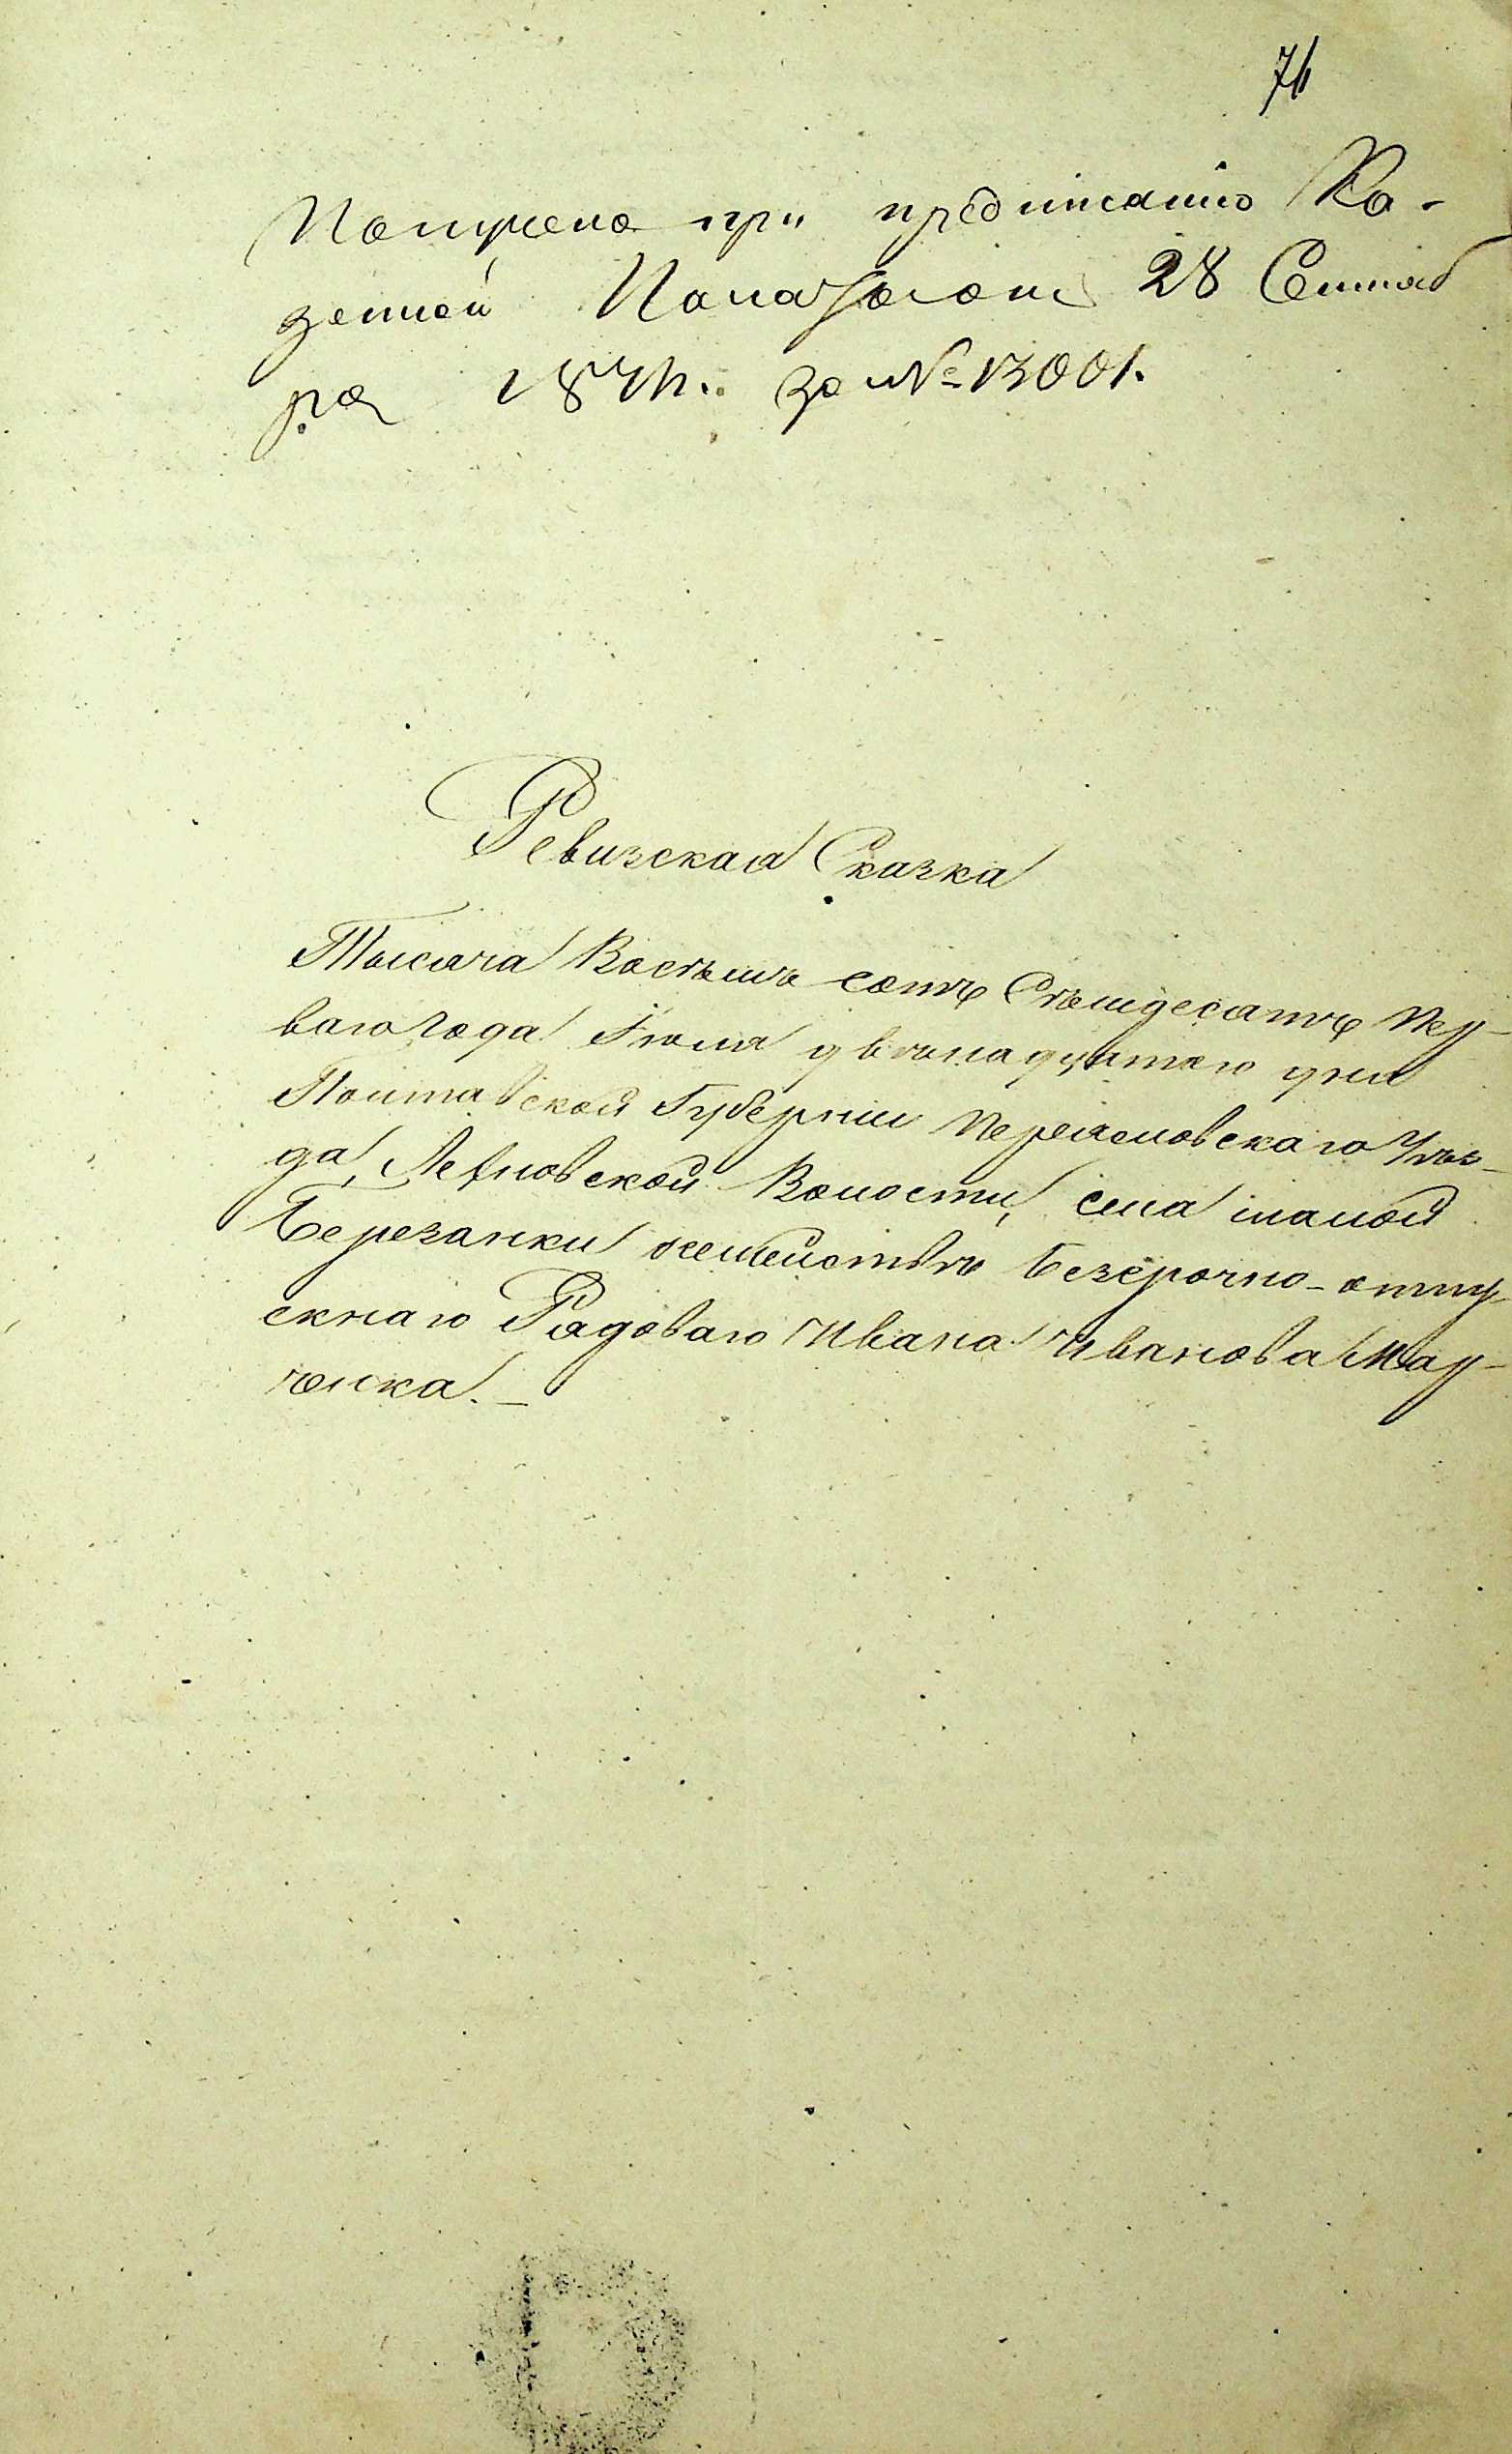 76
Получена при предписанію Ка-
зенной Палаты отъ 28 Сентяб
ря 1871 г. за № 13001.
Ревизская Сказка
Тысяча Восѣмъ сотъ Сѣмдесятъ Пер-
ваго Года Іюля двѣнадцатаго дня
Полтавской Губерніи Переяславскаго Уѣз-
да, Лехновской Волости, села малой
Березанки о семействѣ безсрочно-отпу-
скнаго Рядоваго Ивана Иванова Мар-
ченка.-